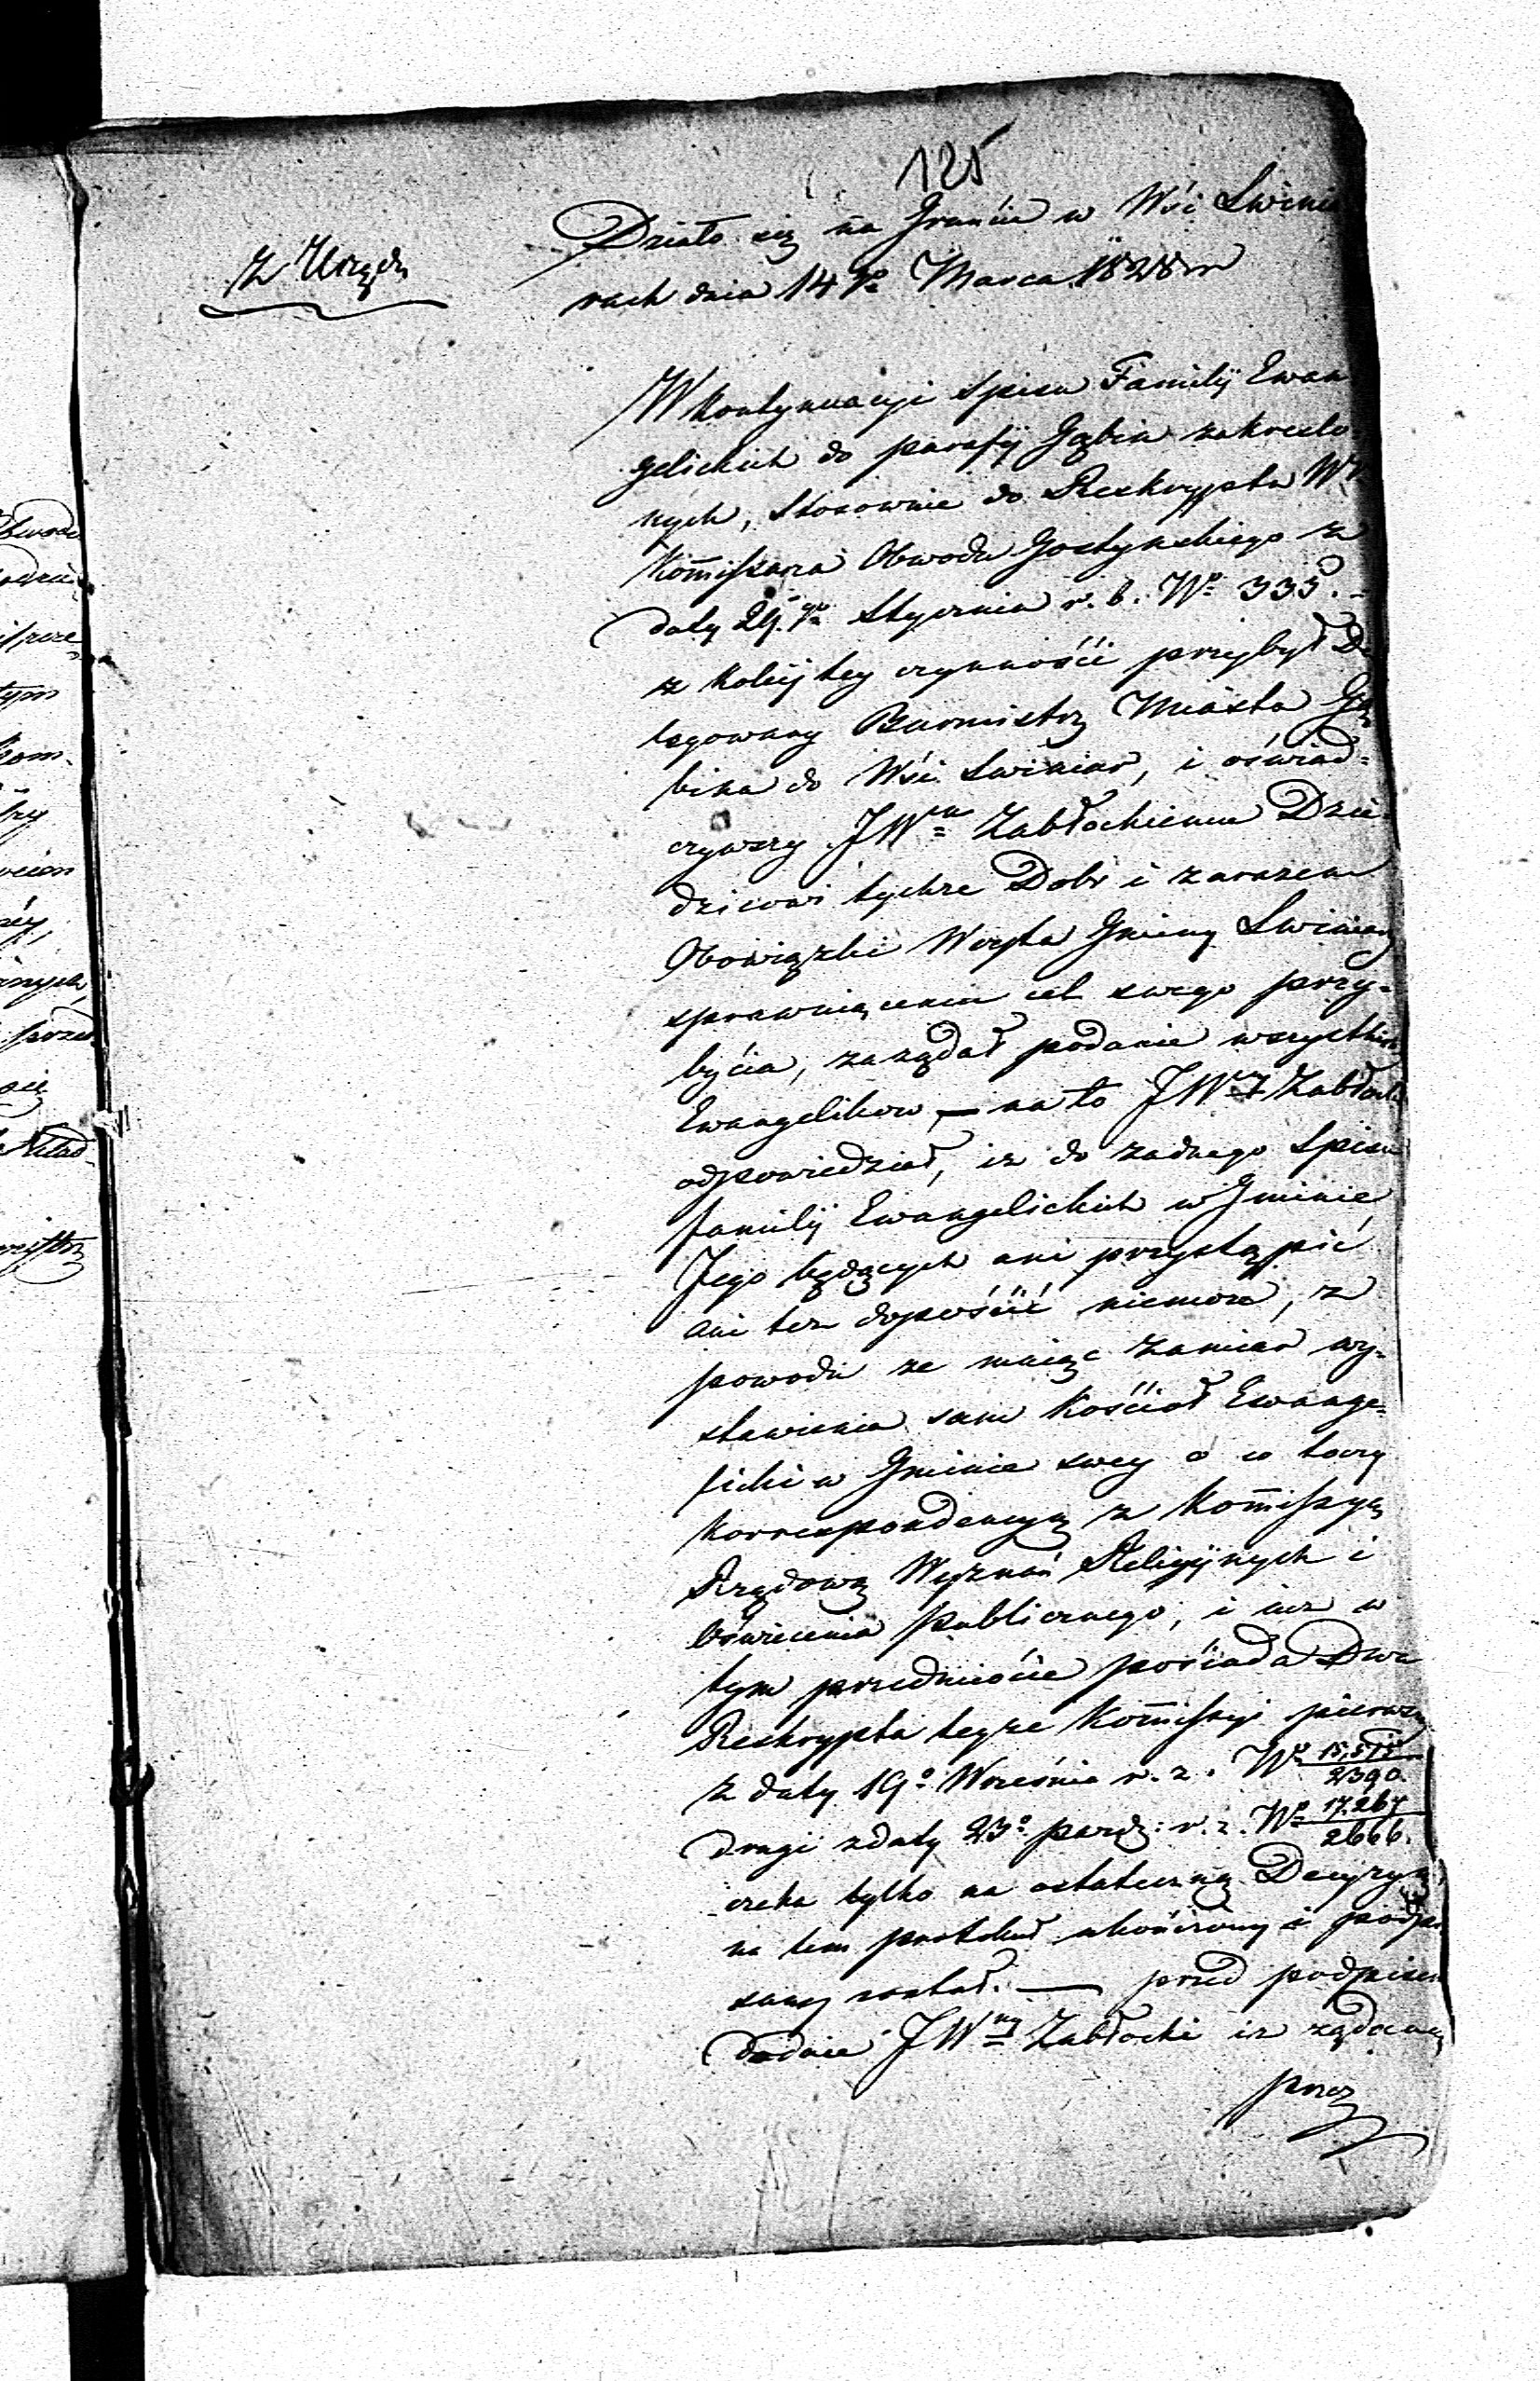 125
Z Urzędu
Działo się na Gruncie w Wśi Swinia
rach dnia 14 go Marca 1828 r
W Kontynuacyi Spisu Familij Ewan
gelickich do parafij Gąbin zakreslo
nych, stosownie do Reskryptu W.
Kommissarza Obwodu Gostynskiego z
daty 29. go Stycznia r. b. No 335. –
z kolej tey czynnośći przybył De
legowany Burmistrz Miasta Gą
bina do Wśi Swiniar, i oświad=
czywszy JWmu Zabłockiemu Dzie
dzicowi tychze Dobr i zarazem
Obowiązki Woyta Gminy Swiniary
sprawuiącemu cel swego przy=
byćia, zarządał podanie wszystkich
Ewangelikow, — na to JWny Zabłocki
odpowiedział, iz do zadnego Spisu
familij Ewangelickich w Gminie
Jego będących ani przystąpić
ani tez dopuśćić niemoze, z
powodu ze maiąc zamiar wy=
stawienia sam Kośćioł Ewange=
licki w Gminie swey o co toczy
korrespondencyą z Kommissyą
Rządową Wyznań Religijnych i
Oświecenia Publicznego, i iuz w
tym przedmioćie pośiada Dwa
Reskrypta teyze Kommissyi pierwszy
z daty 19o Wrześnie r. z. No 2390.
drugi z daty 23o pazdz: r. z. No 17.267/2666.
czeka tylko na ostateczną Decyzyą,
na tem protokuł ukończony i podpi
sany został. — przed podpisem
dodaie JWny Zabłocki iz ządaney
przez